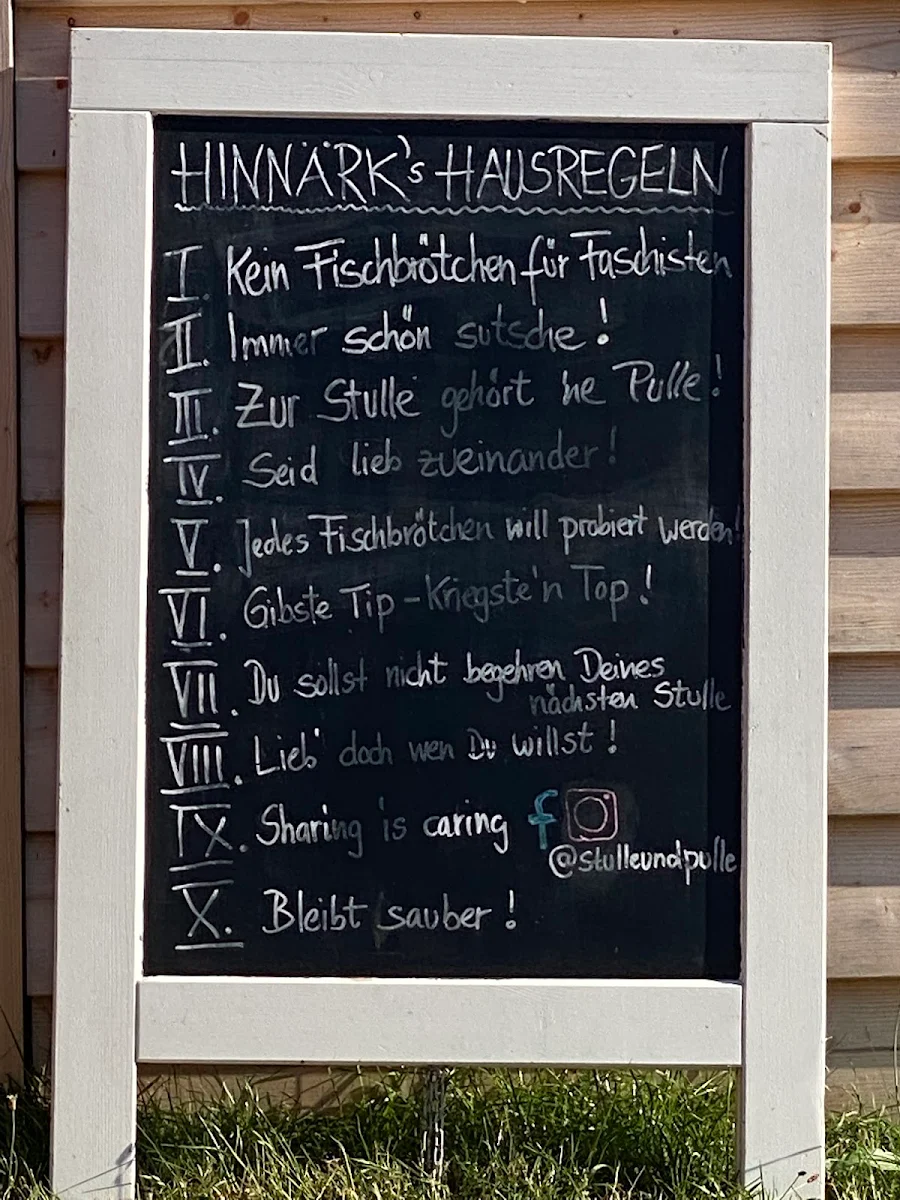 HINNÄRK's HAUSREGELN
I. Kein Fischbrötchen für Faschisten
II. Immer schön sutsche!
III. Zur Stulle gehört 'ne Pulle!
IV. Seid lieb zueinander!
V. Jedes Fischbrötchen will probiert werden!
VI. Gibste Tip - Kriegste'n Top!
VII. Du sollst nicht begehren Deines
nächsten Stulle
VIII. Lieb' doch wen Du willst!
IX. Sharing is caring f
@stulleundpulle
X. Bleibt sauber!